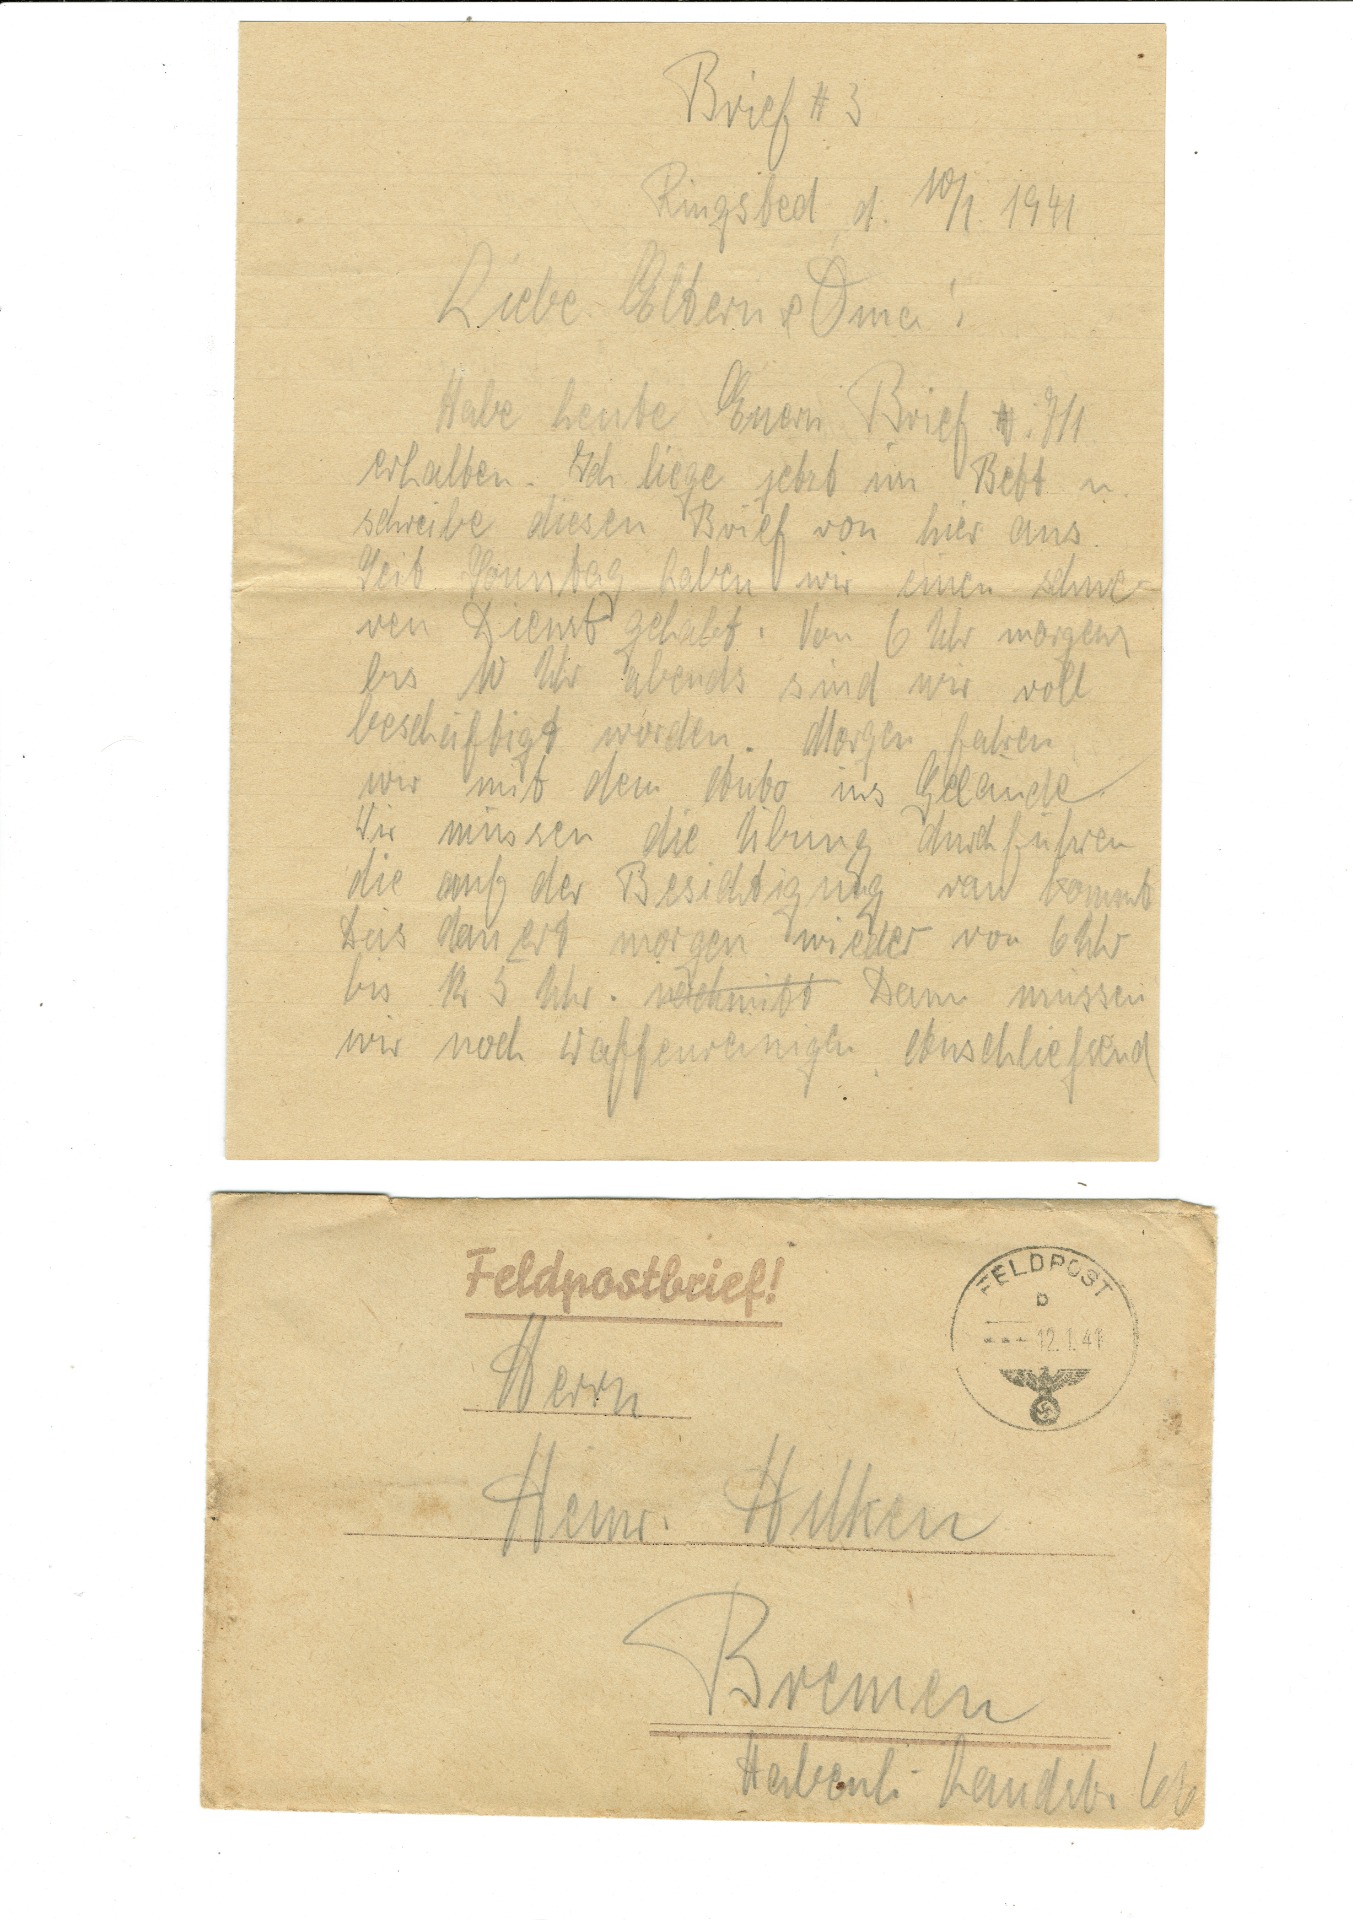 Brief # 3
Ringsted d. 10/1. 1941
Liebe Eltern & Oma!
Habe heute Euern Brief v. 7/1
erhalten. Ich liege jetzt im Bett u.
schreibe diesen Brief von hier aus.
Seit Sonntag haben wir einen schwe-
ren Dienst gehabt. Von 6 Uhr morgens
bis 10 Uhr abends sind wir voll
beschäftigt worden. Morgen fahren
wir mit dem Auto ins Gelände.
Wir müssen die Übung durchführen
die auf der Besichtigung ran kommt
Das dauert morgen wieder von 6 Uhr
bis 5 Uhr. Dann müssen
wir noch Waffenreinigen. Anschließend
Feldpostbrief!
FELDPOST
b
12.1.41
Herrn
Heinr. Hilken
Bremen
Habenh. Landstr.